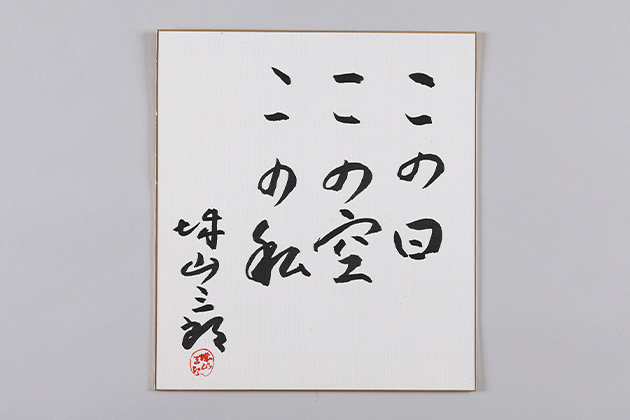 この日
この空
この私
城山三郎